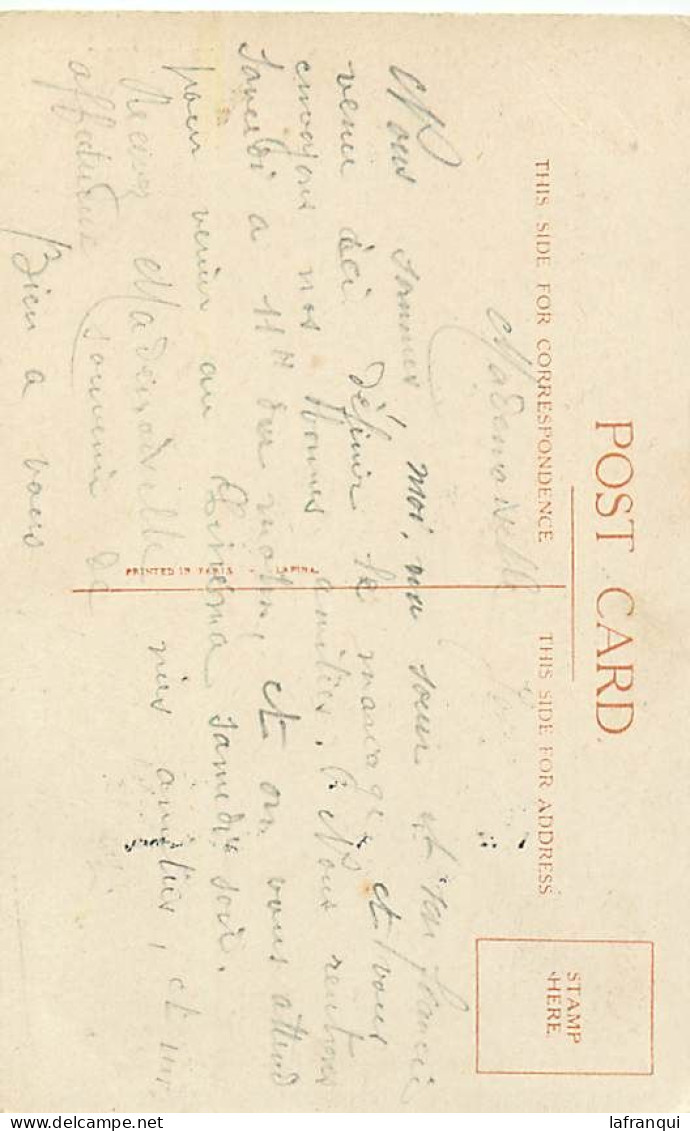 POST CARD.
THIS SIDE FOR CORRESPONDENCE
THIS SIDE FOR ADDRESS
STAMP
HERE.
Mademoiselle
Nous sommes, moi, ma sœur et son fiancé
venu ici définir le mariage et vous
envoyons nos Bonnes amitiés. Nous rentrons
Samedi a 11H du matin, et on vous attend
pour venir au Cinéma samedi soir.
Recevez Mademoiselle mes amitiés, et un
affectueux souvenir de
Bien a vous
PRINTED IN PARIS - LAPINA.
lafranqui